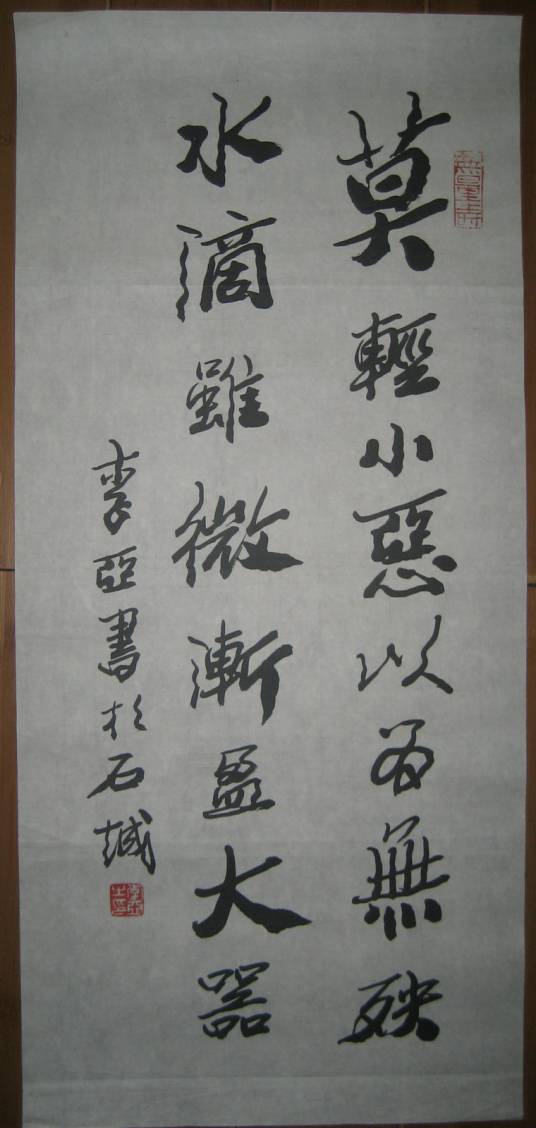 莫輕小惡以為無殃
水滴雖微漸盈大器
李亞書於石城
李亞之印